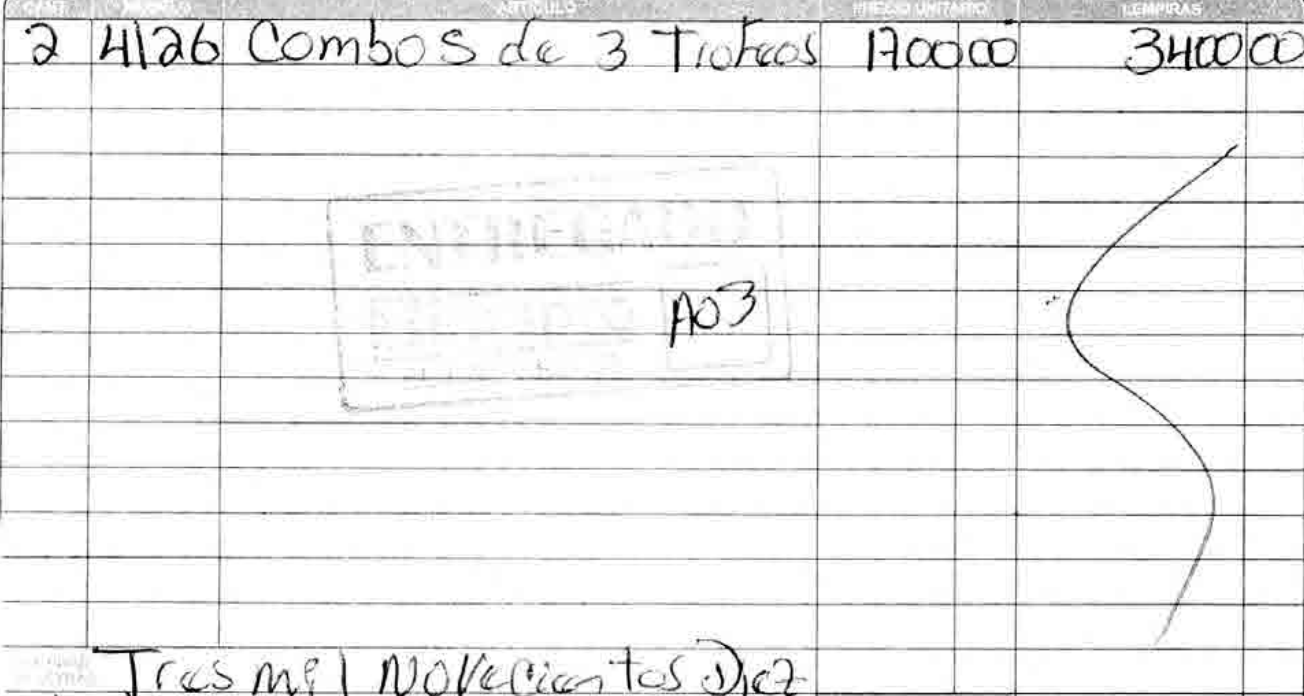 CANT. MODELO ARTICULO PRECIO UNITARIO LEMPIRAS
2 4126 Combos de 3 Trofeos 1700 00 3400 00
A03
Tres mil Novecientos Diez